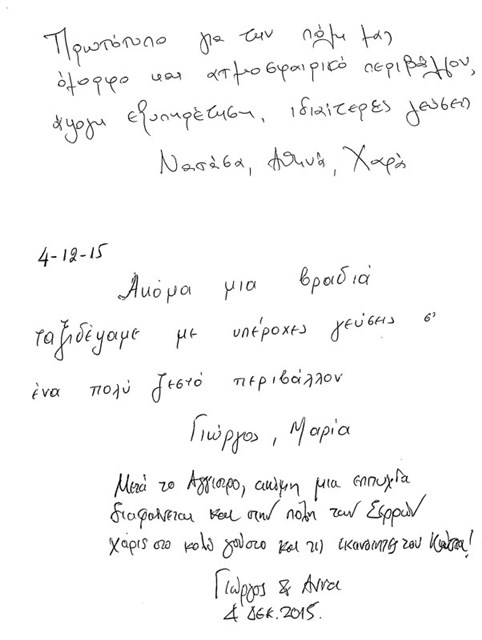 Πρωτότυπο για την πόλη μας
όμορφο και ατμοσφαιρικό περιβάλλον,
άψογη εξυπηρέτηση, ιδιαίτερες γεύσεις
Νατάσα, Αθηνά, Χαρά
4-12-15
Ακόμα μια βραδιά
ταξιδέψαμε με υπέροχες γεύσεις σ'
ένα πολύ ζεστό περιβάλλον
Γιώργος, Μαρία
Μετά το Άγγιστρο, ακόμη μια επιτυχία
διαφαίνεται και στην πόλη των Σερρών
χάρις στο καλό γούστο και τις ικανότητες του Κώστα!
Γιώργος & Άννα
4 Δεκ. 2015.